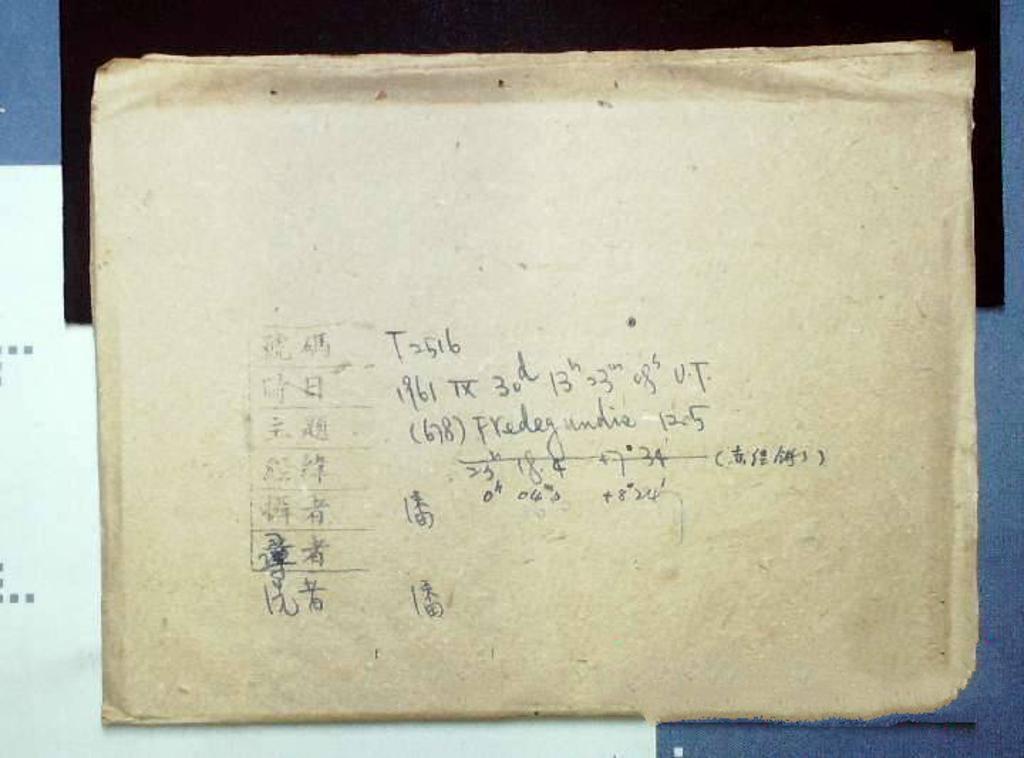 號碼 T2516
時日 1961 IX 30d 13h 23m 08s U.T.
主題 (678) Fredegundis 12.5
經緯 23h 18.4 +7°34′ (赤经错了)
0h 04m.0 +8°24′
者 潘
尋者
洗者 潘